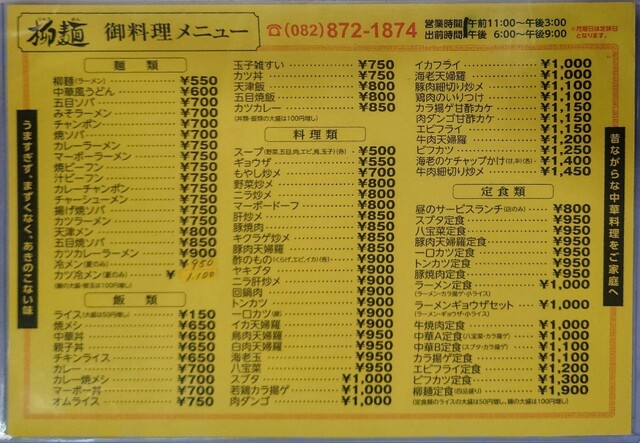 柳麺 御料理メニュー ☎(082)872-1874
営業時間 午前11:00〜午後3:00
出前時間 午後 6:00〜午後9:00
※月曜日は定休日となります。
うますぎず、まずくなく、あきのこない味
麺類
柳麺(ラーメン) ¥550
中華風うどん ¥600
五目ソバ ¥700
みそラーメン ¥700
チャンポン ¥700
焼ソバ ¥700
カレーラーメン ¥750
マーボーラーメン ¥750
焼ビーフン ¥750
汁ビーフン ¥750
カレーチャンポン ¥750
チャーシューメン ¥750
揚げ焼ソバ ¥750
カツラーメン ¥750
天津メン ¥800
五目焼ソバ ¥850
カツカレーラーメン ¥900
冷メン(夏のみ) ¥950
カツ冷メン(夏のみ) ¥1,100
(麺の大盛・替玉は100円増し)
飯類
ライス(大盛は50円増し) ¥150
焼メシ ¥650
中華丼 ¥650
親子丼 ¥650
チキンライス ¥650
カレー ¥700
カレー焼メシ ¥700
マーボー丼 ¥700
オムライス ¥750
玉子雑すい ¥750
カツ丼 ¥750
天津飯 ¥800
五目焼飯 ¥800
カツカレー ¥850
(丼類・飯類の大盛は100円増し)
料理類
スープ(野菜,五目,肉,エビ,鳥,玉子)(各) ¥500
ギョウザ ¥550
もやし炒め ¥700
野菜炒め ¥800
ニラ炒め ¥800
マーボードーフ ¥800
肝炒め ¥850
豚焼肉 ¥850
キクラゲ炒め ¥850
豚肉天婦羅 ¥850
酢のもの(くらげ,エビ,イカ)(各) ¥900
ヤキブタ ¥900
ニラ肝炒め ¥900
回鍋肉 ¥900
トンカツ ¥900
一口カツ(豚) ¥900
イカ天婦羅 ¥900
鳥肉天婦羅 ¥950
白肉天婦羅 ¥950
海老玉 ¥950
八宝菜 ¥950
スブタ ¥1,000
若鶏カラ揚げ ¥1,000
肉ダンゴ ¥1,000
イカフライ ¥1,000
海老天婦羅 ¥1,000
豚肉細切り炒メ ¥1,100
鶏肉のいりつけ ¥1,100
カラ揚げ甘酢カケ ¥1,150
肉ダンゴ甘酢カケ ¥1,150
エビフライ ¥1,150
牛肉天婦羅 ¥1,200
ビフカツ ¥1,250
海老のケチャップかけ(甘,辛)(各) ¥1,400
牛肉細切り炒メ ¥1,450
定食類
昼のサービスランチ(店のみ) ¥800
スブタ定食 ¥950
八宝菜定食 ¥950
豚肉天婦羅定食 ¥950
一口カツ定食 ¥950
トンカツ定食 ¥950
豚焼肉定食 ¥950
ラーメン定食 ¥1,000
(ラーメン・カラ揚げ・小ライス)
ラーメンギョウザセット ¥1,000
(ラーメン・ギョウザ・小ライス)
牛焼肉定食 ¥1,000
中華A定食(八宝菜・カラ揚げ) ¥1,000
中華B定食(スブタ・カラ揚げ) ¥1,100
カラ揚げ定食 ¥1,100
エビフライ定食 ¥1,200
ビフカツ定食 ¥1,300
柳麺定食(四品盛り) ¥1,900
(定食類のライスの大盛は50円増し、麺の大盛は100円増し)
昔ながらな中華料理をご家庭へ